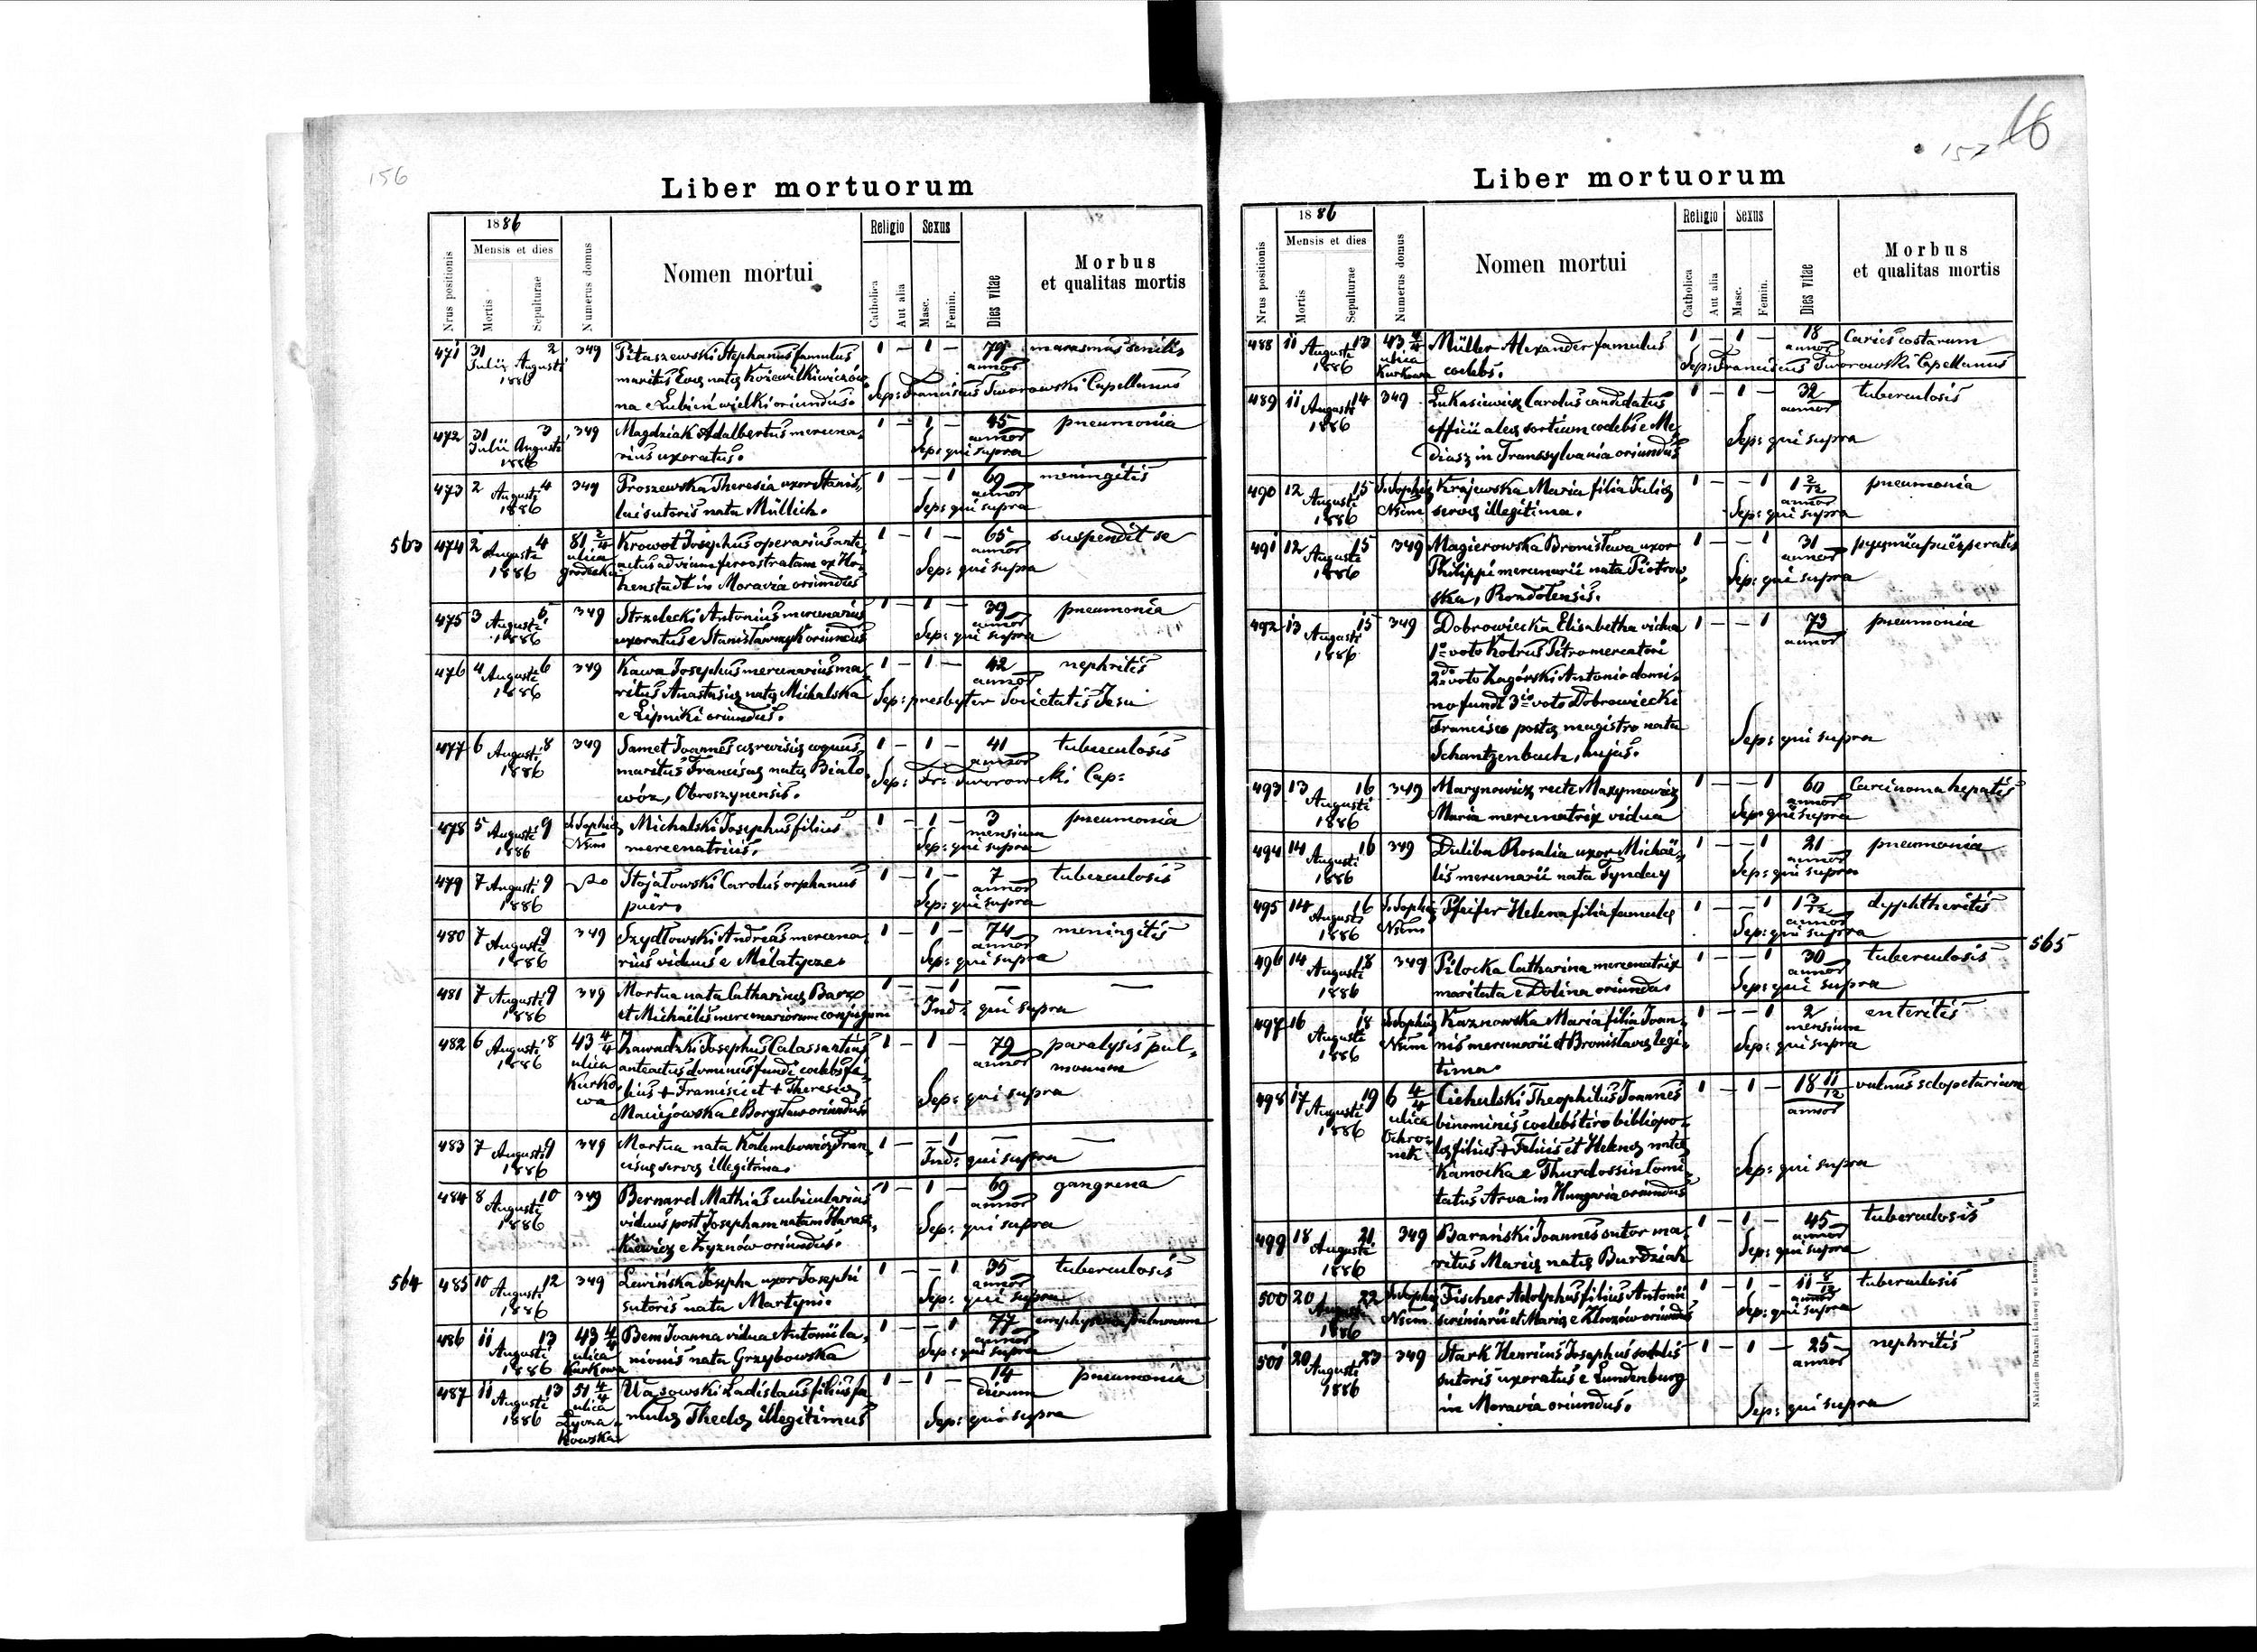 156
Liber mortuorum
1886
Mensis et dies
Nrus positionis
Mortis
Sepulturae
Numerus domus
Nomen mortui
Religio
Catholica
Aut alia
Sexus
Masc.
Femin.
Dies vitae
Morbus
et qualitas mortis
471 31 Julii 2 Augusti 1886 349 Pitaszewski Stephanus famulus 1 – 1 – 79 annor marasmus senilis
maritus Evae natae
na e Lubień wielki oriundus. Sep: Franciscus Tworowski Capellanus
472 31 Julii 3 Augusti 1886 349 Magdziak Adalbertus mercena- 1 – 1 – 45 annor pneumonia
rius uxoratus. Sep: qui supra
473 2 Augusti 4 1886 349 Proszewska Theresia uxor Stanis- 1 – – 1 69 annor meningitis
lai sutoris nata Müllich. Sep: qui supra
563
474 2 Augusti 4 1886 81 2/4 ulica grodecka Krowot Josephus operarius ante- 1 – 1 – 65 annor suspendit se
actus ad viam ferrostratam ex Ho-
henstadt in Moravia oriundus Sep: qui supra
475 3 Augusti 5 1886 349 Strzelecki Antonius mercenarius 1 – 1 – 39 annor pneumonia
uxoratus e Stanisławczyk oriundus Sep: qui supra
476 4 Augusti 6 1886 349 Kawa Josephus mercenarius ma- 1 – 1 – 42 annor nephritis
ritus Anastasiae natae Michalska Sep: presbyter Societatis Jesu
e Lipniki oriundus.
477 6 Augusti 8 1886 349 Samet Joannes cerevisiae coquus, 1 – 1 – 41 annor tuberculosis
maritus Franciscae natae Biało- Sep: Fr: Tworowski Cap:
wóz, Obroszynensis.
478 5 Augusti 9 1886 S. Sophiae Nsim Michalski Josephus filius 1 – 1 – 3 mensium pneumonia
mercenatricis. Sep: qui supra
479 7 Augusti 9 1886 Stojałowski Carolus orphanus 1 – 1 – 7 annor tuberculosis
puer. Sep: qui supra
480 7 Augusti 9 1886 349 Szydłowski Andreas mercena- 1 – 1 – 74 annor meningitis
rius viduus e Milatycze. Sep: qui supra
481 7 Augusti 9 1886 349 Mortua nata Catharinae Barzo 1 – – 1 — —
et Michaëlis mercenariorum conjugum Ind: qui supra
482 6 Augusti 8 1886 43 4/4 ulica Kurkowa Zawadzki Josephus Calassantius 1 – 1 – 79 annor paralysis pul-
anteactus dominus fundi coelebs fi- monum
lius + Francisci et + Theresiae
Maciejowska e Borysław oriundus Sep: qui supra
483 7 Augusti 9 1886 349 Mortua nata Kalembowicz Fran- 1 – – 1 — —
ciscae servae illegitima. Ind: qui supra
484 8 Augusti 10 1886 349 Bernard Mathias cubicularius 1 – 1 – 69 annor gangrena
viduus post Josepham natam Haras-
kiewicz e Żyznów oriundus. Sep: qui supra
564
485 10 Augusti 12 1886 349 Lewińska Josepha uxor Josephi 1 – – 1 35 annor tuberculosis
sutoris nata Martyni. Sep: qui supra
486 11 Augusti 13 1886 43 4/4 ulica Kurkowa Bem Joanna vidua Antonii la- 1 – – 1 77 annor emphysema pulmonum
nionis nata Grzybowska Sep: qui supra
487 11 Augusti 13 1886 51 4/4 ulica Łyczakowska Wąsowski Ladislaus filius fa- 1 – 1 – 14 dierum pneumonia
mulae Theclae illegitimus Sep: qui supra
157 16
Liber mortuorum
1886
Mensis et dies
Nrus positionis
Mortis
Sepulturae
Numerus domus
Nomen mortui
Religio
Catholica
Aut alia
Sexus
Masc.
Femin.
Dies vitae
Morbus
et qualitas mortis
488 11 Augusti 13 1886 43 4/4 ulica Kurkowa Müller Alexander famulus 1 – 1 – 18 annor Caries costarum
coelebs. Sep: Franciscus Tworowski Capellanus
489 11 Augusti 14 1886 349 Łukasiewicz Carolus candidatus 1 – 1 – 32 annor tuberculosis
officii aleae sortium coelebs e Me-
diasz in Transsylvania oriundus Sep: qui supra
490 12 Augusti 15 1886 S. Sophiae Nsim Krajewska Maria filia Juliae 1 – – 1 1 2/12 annor pneumonia
servae illegitima. Sep: qui supra
491 12 Augusti 15 1886 349 Magierowska Bronisława uxor 1 – – 1 31 annor pyaemia puerperalis
Philippi mercenarii nata Piotrow-
ska, Sep: qui supra
492 13 Augusti 15 1886 349 Dobrowiecka Elisabetha vidua 1 – – 1 73 annor pneumonia
1o voto Kobrus Petro mercatori
2do voto Zagórski Antonio domi-
no fundi 3io voto Dobrowiecki
Francisco postae magistro nata
Schantzenbach, hujas. Sep: qui supra
493 13 Augusti 16 1886 349 Marynowicz recte Maxymowicz 1 – – 1 60 annor Carcinoma hepatis
Maria mercenatrix vidua Sep: qui supra
494 14 Augusti 16 1886 349 Duliba Rosalia uxor Michaë- 1 – – 1 21 annor pneumonia
lis mercenarii nata Tynday Sep: qui supra
495 14 Augusti 16 1886 S. Sophiae Nsim Pfeifer Helena filia famulae 1 – – 1 1 3/12 annor dyphtheritis
Sep: qui supra
565
496 14 Augusti 18 1886 349 Pilocka Catharina mercenatrix 1 – – 1 30 annor tuberculosis
maritata e Dolina oriunda. Sep: qui supra
497 16 Augusti 18 1886 S. Sophiae Nsim Kaznowska Maria filia Joan- 1 – – 1 2 mensium enteritis
nis mercenarii et Bronislavae legi-
tima. Sep: qui supra
498 17 Augusti 19 1886 6 4/4 ulica Ochronek Cichulski Theophilus Joannes 1 – 1 – 18 11/12 annor vulnus sclopetarium
binominis coelebs tiro bibliopo-
lae filius + Felicis et Helenae natae
Kamocka e Thurdossin Comi-
tatus Arva in Hungaria oriundus Sep: qui supra
499 18 Augusti 21 1886 349 Barański Joannes sutor ma- 1 – 1 – 45 annor tuberculosis
ritus Mariae natae Burdziak Sep: qui supra
500 20 Augusti 22 1886 S. Sophiae Nsim Fischer Adolphus filius Antonii 1 – 1 – 11 8/12 annor tuberculosis
scriniarii et Mariae e oriundus Sep: qui supra
501 20 Augusti 23 1886 349 Stark Henricus Josephus sodalis 1 – 1 – 25 annor nephritis
sutoris uxoratus e Lundenburg
in Moravia oriundus. Sep: qui supra
Nakładem Drukarni Ludowej we Lwowie